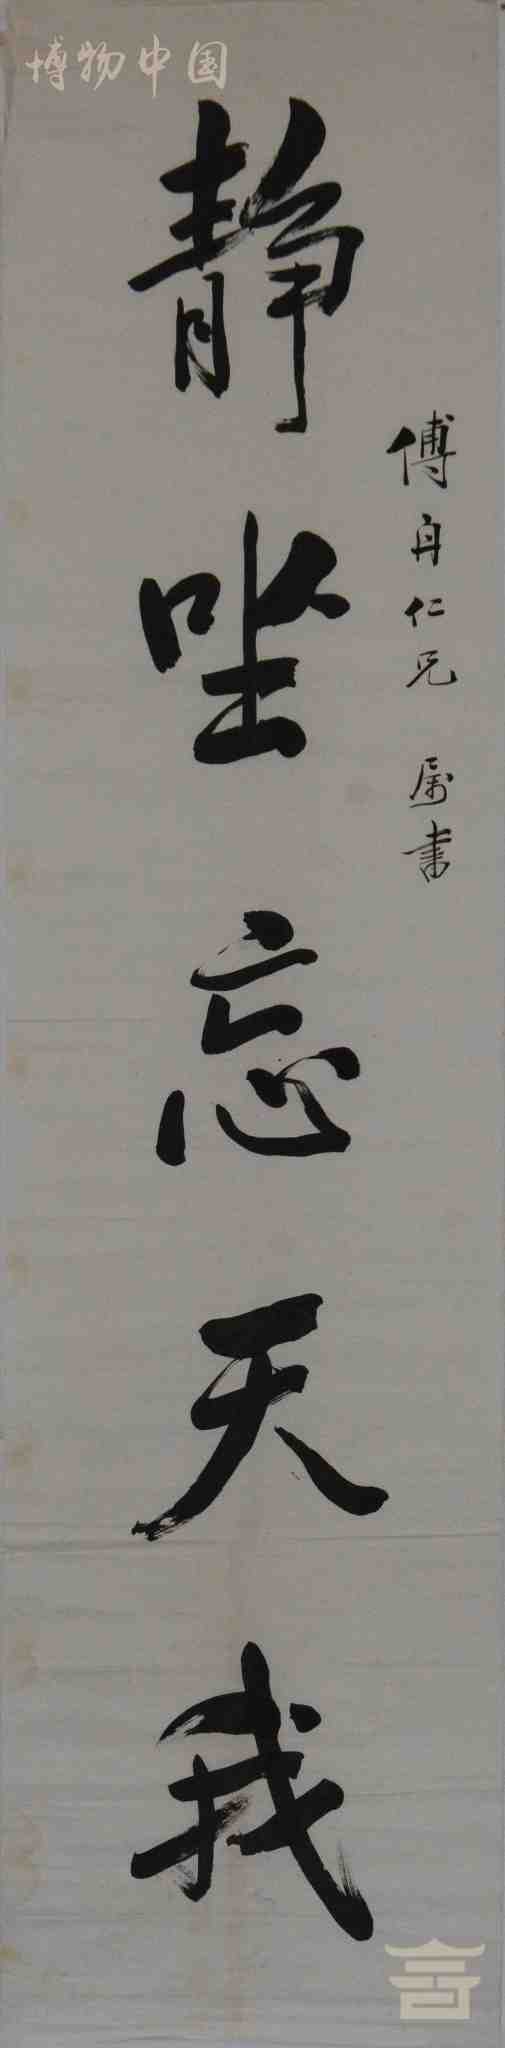 博物中国
傅舟仁兄 属书
静坐忘天我